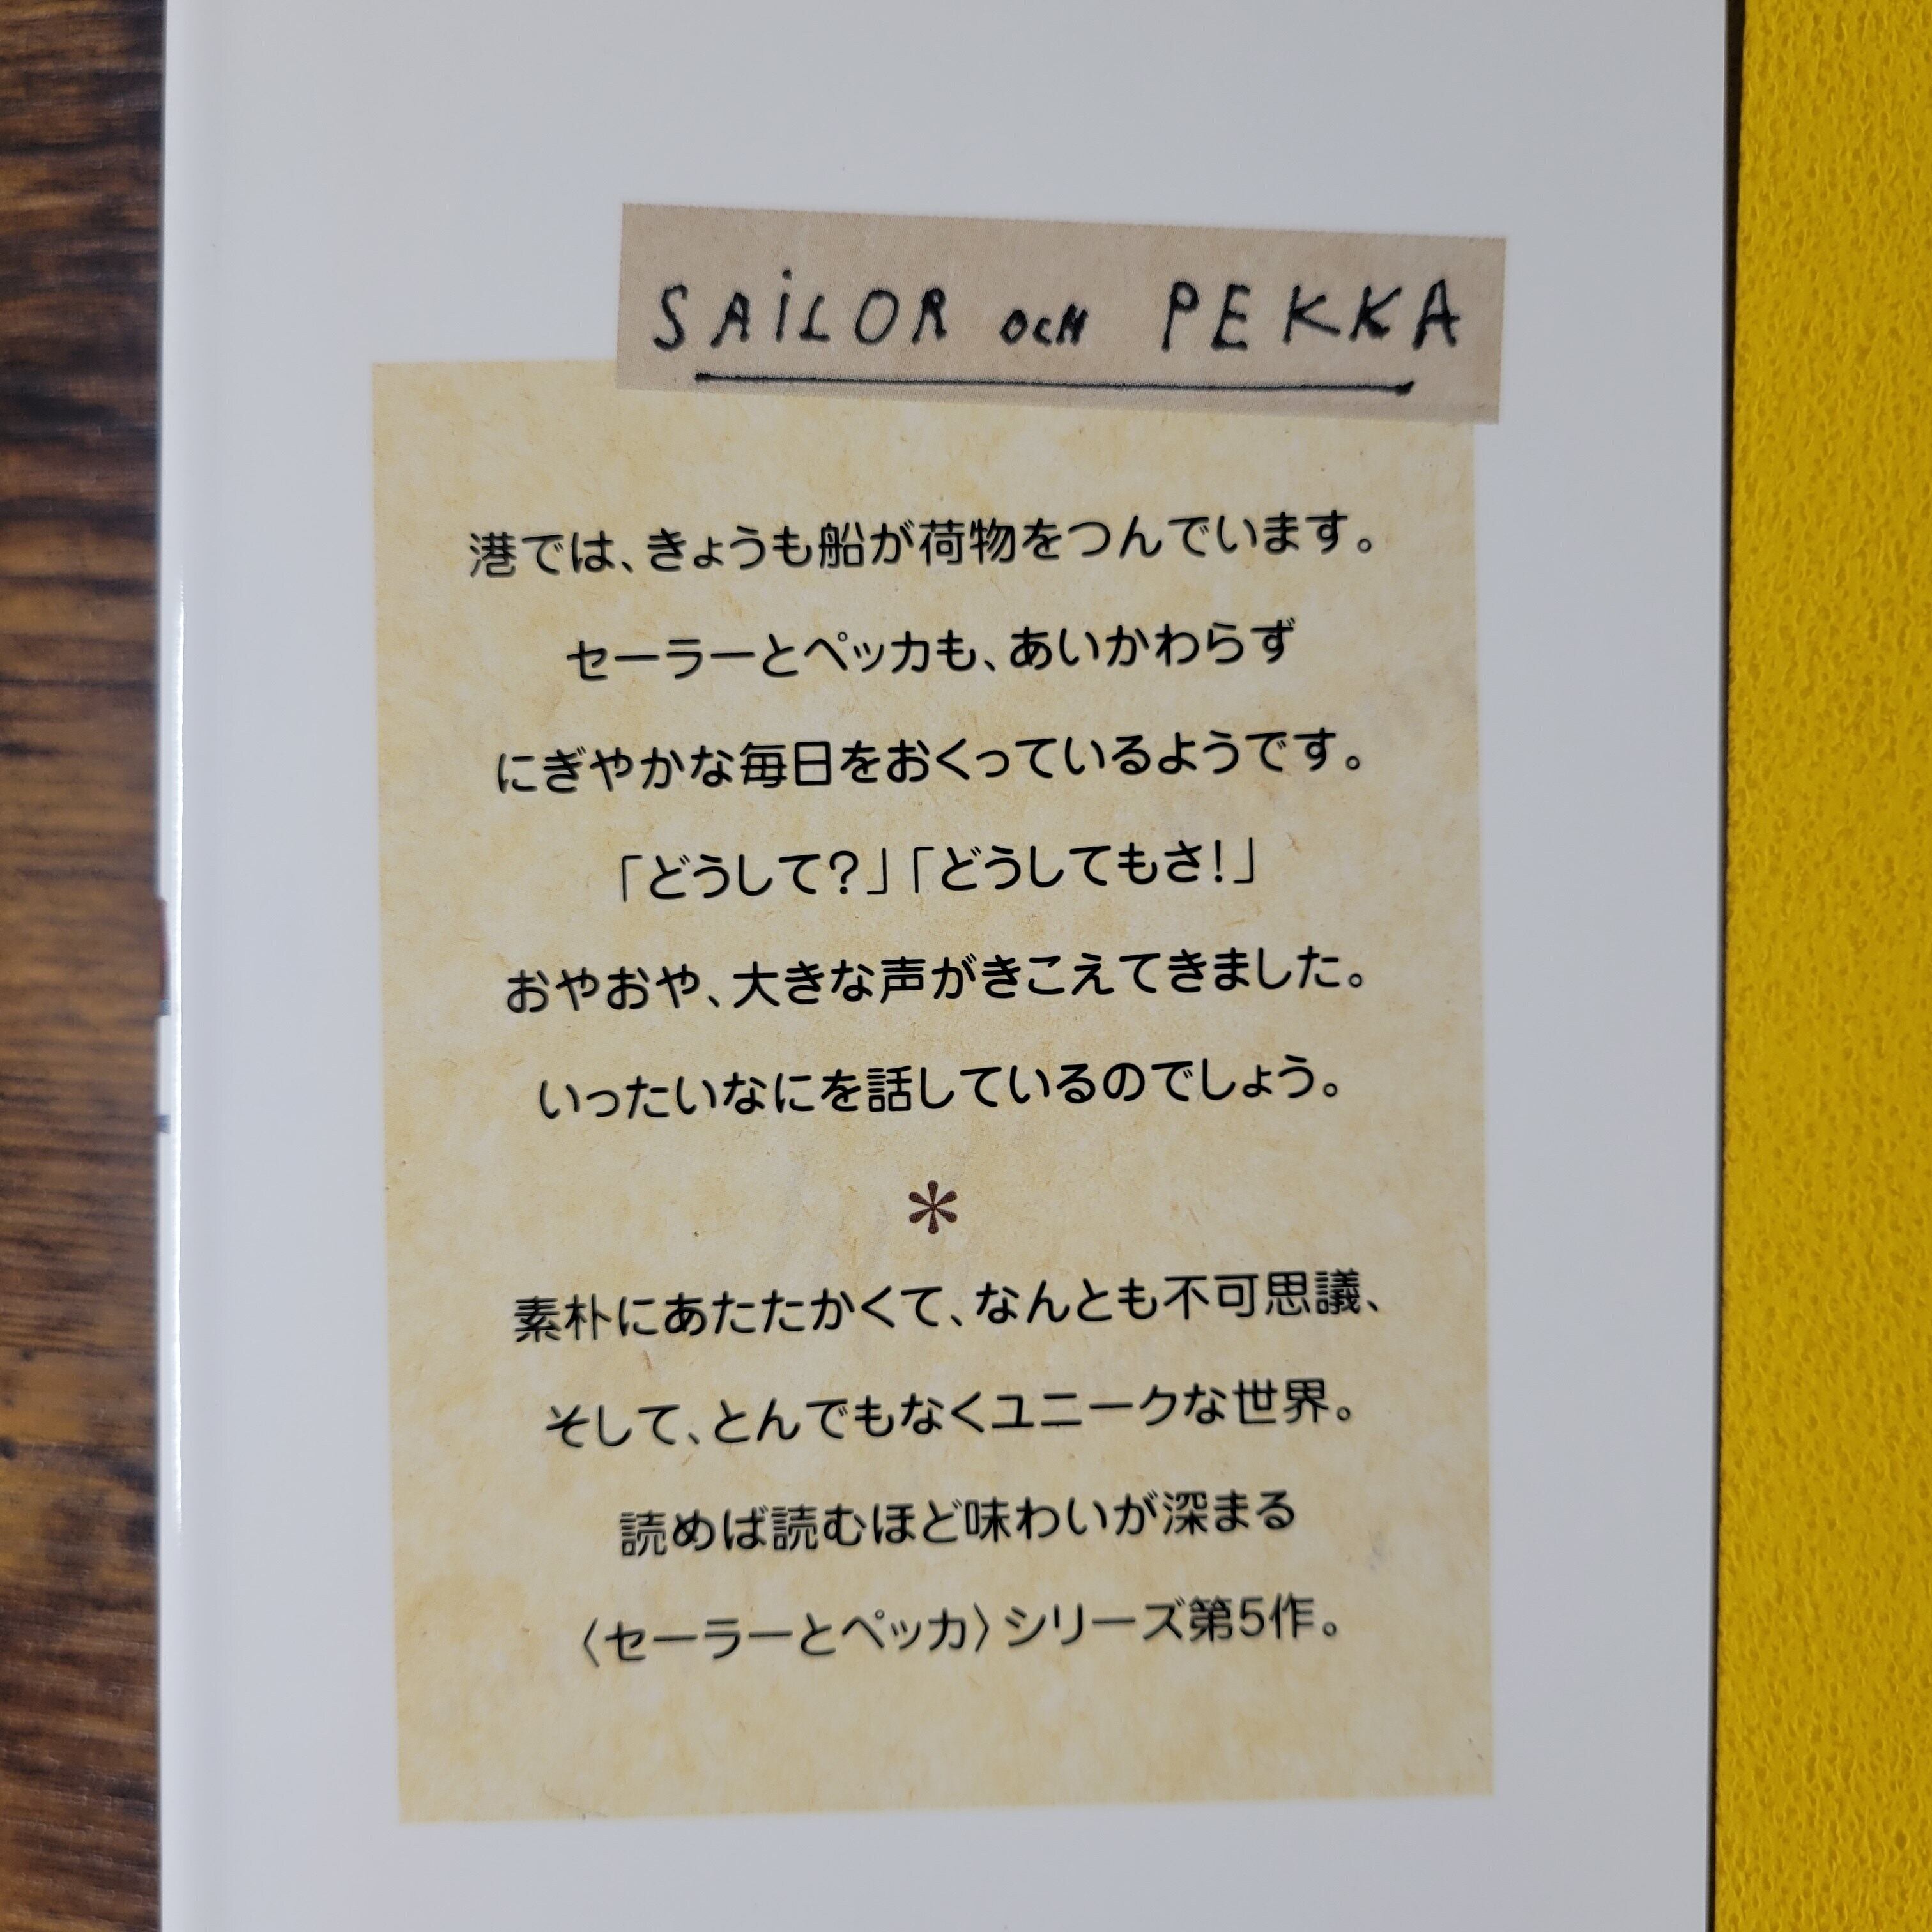 SAiLOR OCH PEKKA
港では、きょうも船が荷物をつんでいます。
セーラーとペッカも、あいかわらず
にぎやかな毎日をおくっているようです。
「どうして?」「どうしてもさ!」
おやおや、大きな声がきこえてきました。
いったいなにを話しているのでしょう。
*
素朴にあたたかくて、なんとも不可思議、
そして、とんでもなくユニークな世界。
読めば読むほど味わいが深まる
〈セーラーとペッカ〉シリーズ第5作。